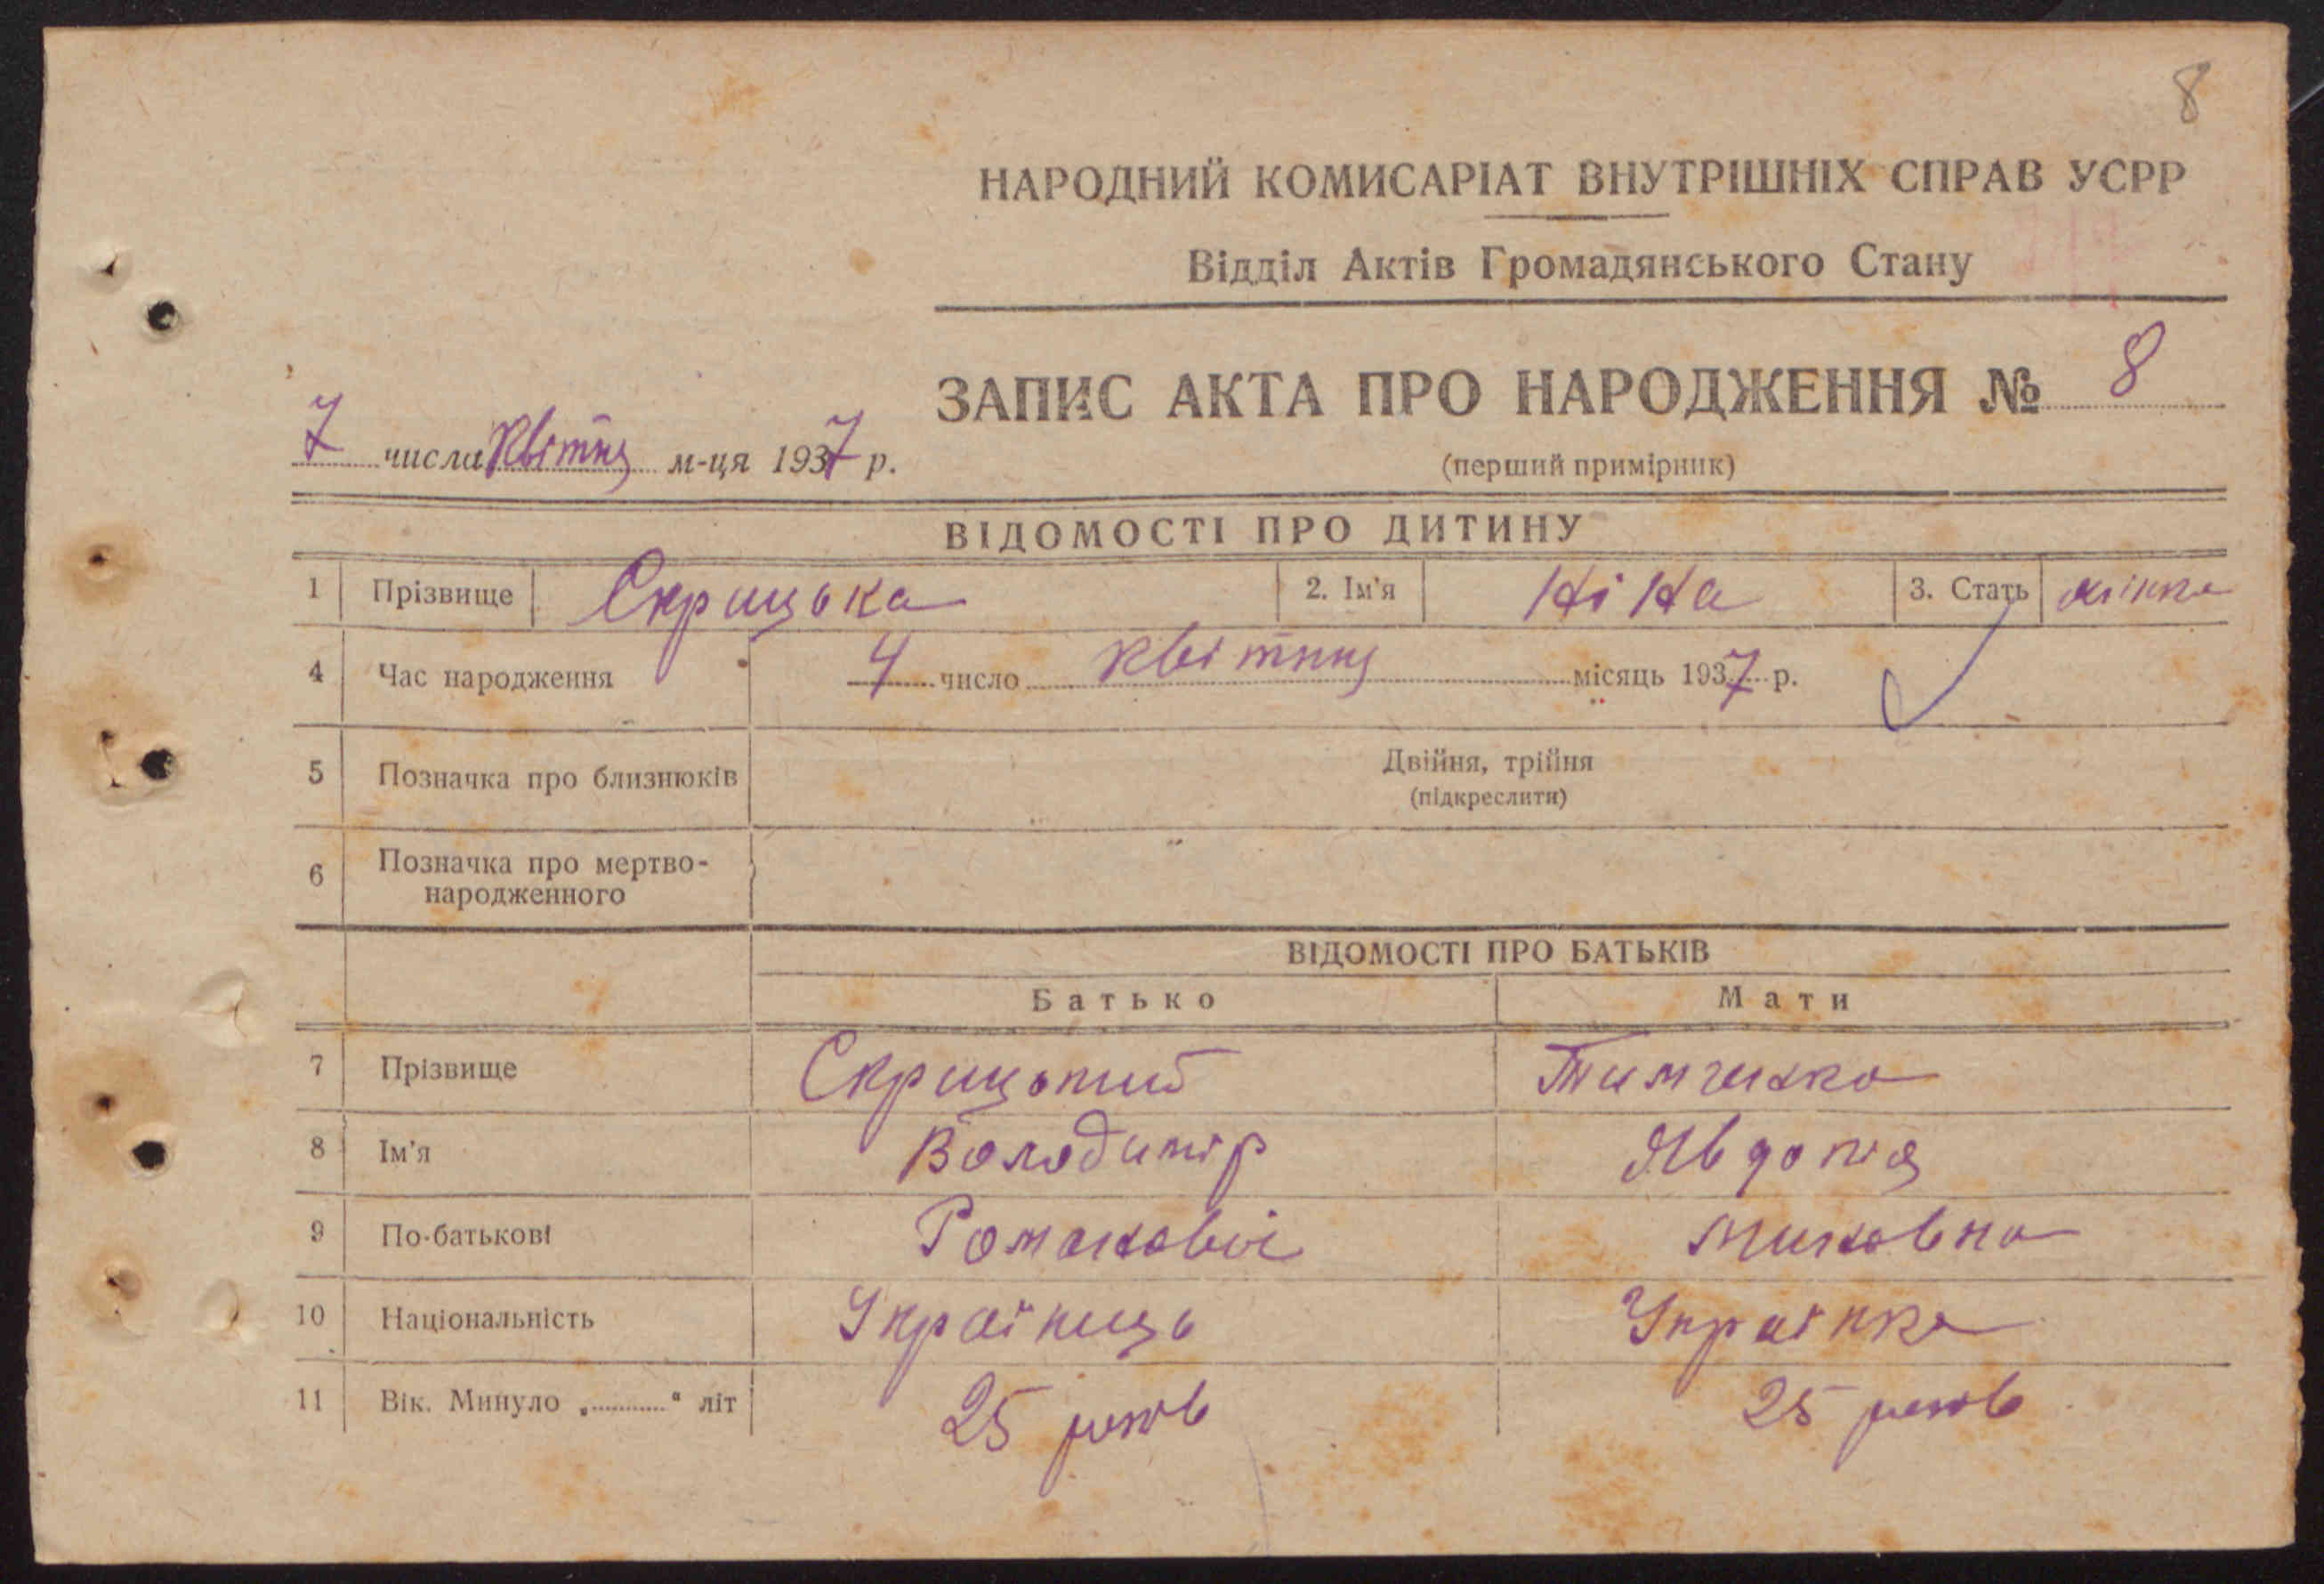 8
НАРОДНИЙ КОМИСАРІАТ ВНУТРІШНІХ СПРАВ УСРР
Відділ Актів Громадянського Стану
ЗАПИС АКТА ПРО НАРОДЖЕННЯ № 8
7 числа квітня м-ця 1937 р.
(перший примірник)
ВІДОМОСТІ ПРО ДИТИНУ
1 Прізвище Скрицька 2. Ім'я Ніна 3. Стать жінка
4 Час народження 4 число квітня місяць 1937 р.
5 Позначка про близнюків Двійня, трійня
(підкреслити)
6 Позначка про мертво-
народженного
ВІДОМОСТІ ПРО БАТЬКІВ
Батько Мати
7 Прізвище Скрицький Тимченко
8 Ім'я Володимір Явдокія
9 По-батькові Романович
10 Національність Українець Українка
11 Вік. Минуло „..........“ літ 25 років 25 років